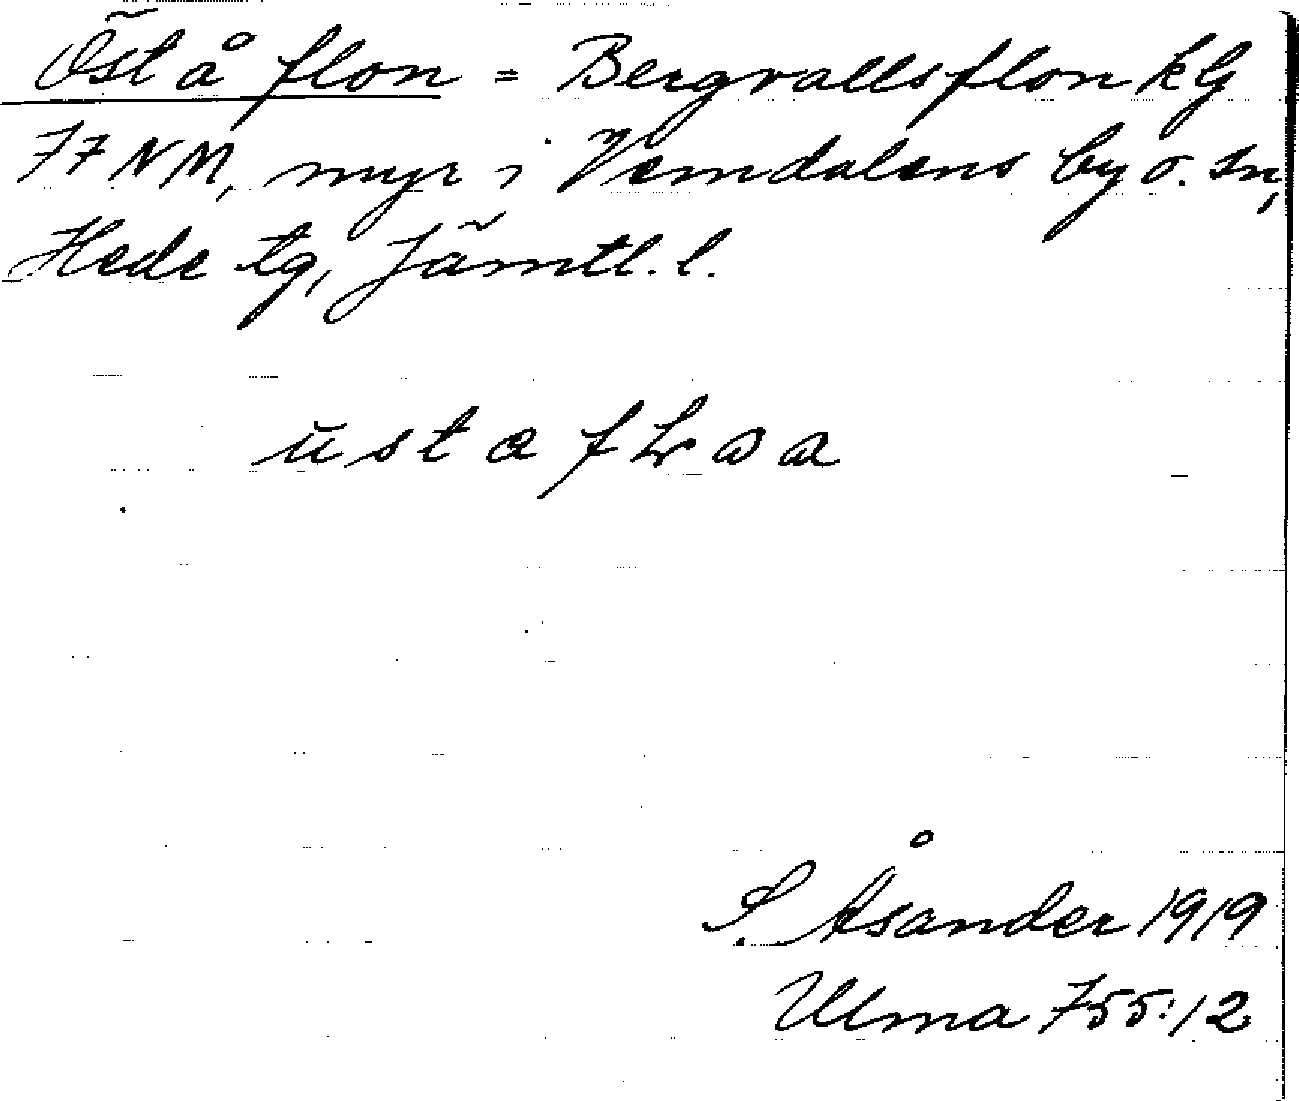 Östå flon = Bergvallsflon kG
77 NM, myr i Vemdalens by o. sn,
Hede tg, Jämtl. l.
S. Åsander 1919
Ulma 755:12